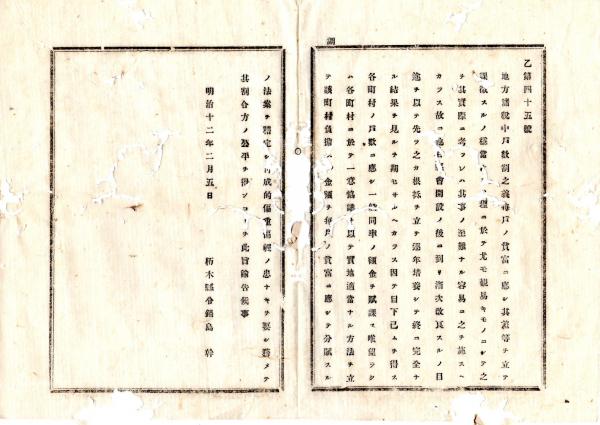 調
乙第四十五號
地方諸税中戸数割之義毎戸ノ貧富ニ應シ其差等ヲ立テ
課徴スルノ穏當ナル理ニ於テ尤モ観易キモノニシテ之
ヲ其實際ニ考フレハ其事ノ至難ナル容易ニ之ヲ施スヘ
カラス故ニ 會開設ノ後ニ到リ漸次改良スルノ目
途ヲ以テ先ツ之カ根基ヲ立テ逐年培養シテ終ニ完全ナ
ル結果ヲ見ルヲ期セサルヘカラス因テ目下已ムヲ得ス
各町村ノ戸数ニ應シ一般同率ノ額金ヲ賦課ス唯望ラク
ハ各町村ニ於テ一意協議ヲ以テ實地適當ナル方法ヲ立
テ該町村負擔ノ金額ヲ毎戸ノ貧富ニ應シテ分賦スル
ノ法案ヲ穏定シ 偏重偏輕ノ患ナキヲ要シ務メテ
其割合方ノ公平ヲ得ンコトヲ此旨諭告候事
明治十二年二月五日
栃木縣令鍋島 幹